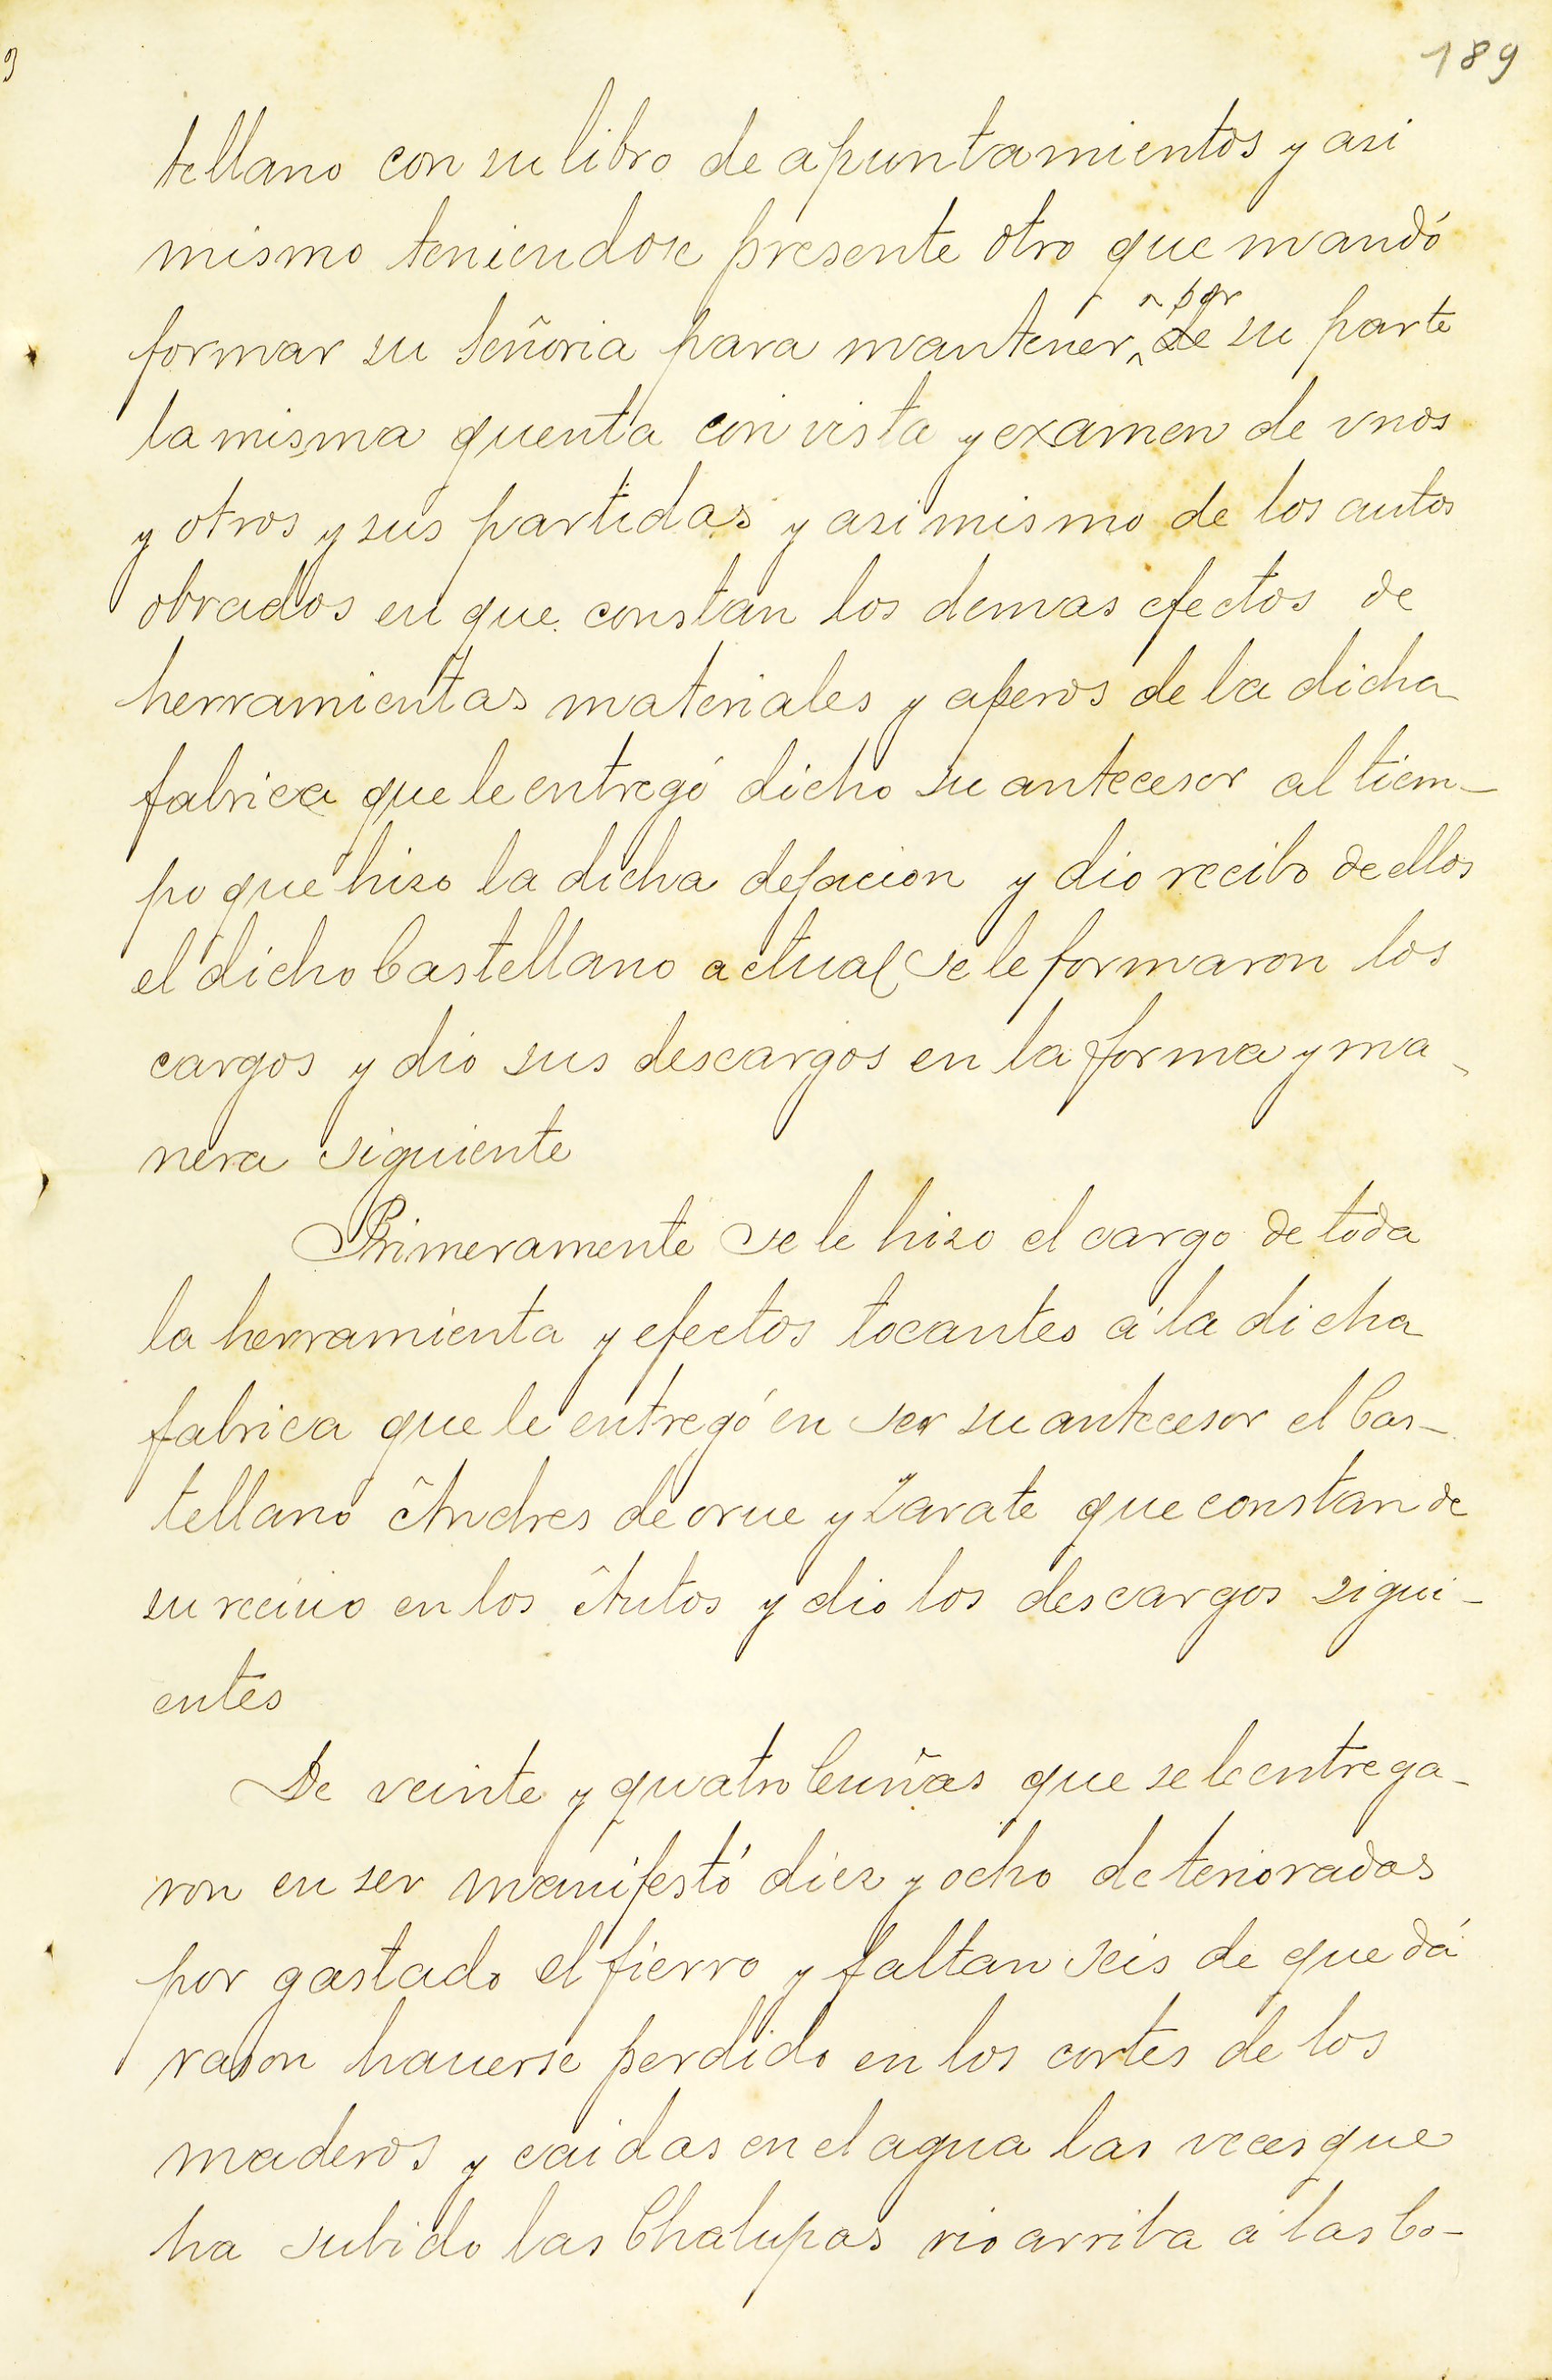 189
tellano con su libro de apuntamientos y asi
mismo teniendose presente otro que mandó
formar su Señoria para mantener por su parte
la misma quenta con vista y examen de vnos
y otros y sus partidas y asi mismo de los autos
obrados en que constan los demas efectos de
herramientas materiales y aperos de la dicha
fabrica que le entregó dicho su antecesor al tiem-
po que hizo la dicha dejacion y dio recibo de ellos
el dicho Castellano actual se le formaron los
cargos y dio sus descargos en la forma y ma-
nera siguiente
Primeramente se le hizo el cargo de toda
la herramienta y efectos tocantes á la dicha
fabrica que le entregó en ser su antecesor el Cas-
tellano Andres de orue y Zarate que constan de
su reciuo en los Autos y dio los descargos sigui-
entes
De veinte y quatro Cuñas que se le entrega-
ron en ser manifestó diez y ocho deterioradas
por gastado el fierro y faltan seis de que dá
rason hauerse perdido en los cortes de los
maderos y caidas en el agua las veces que
ha subido las Chalupas rio arriba á las Co-